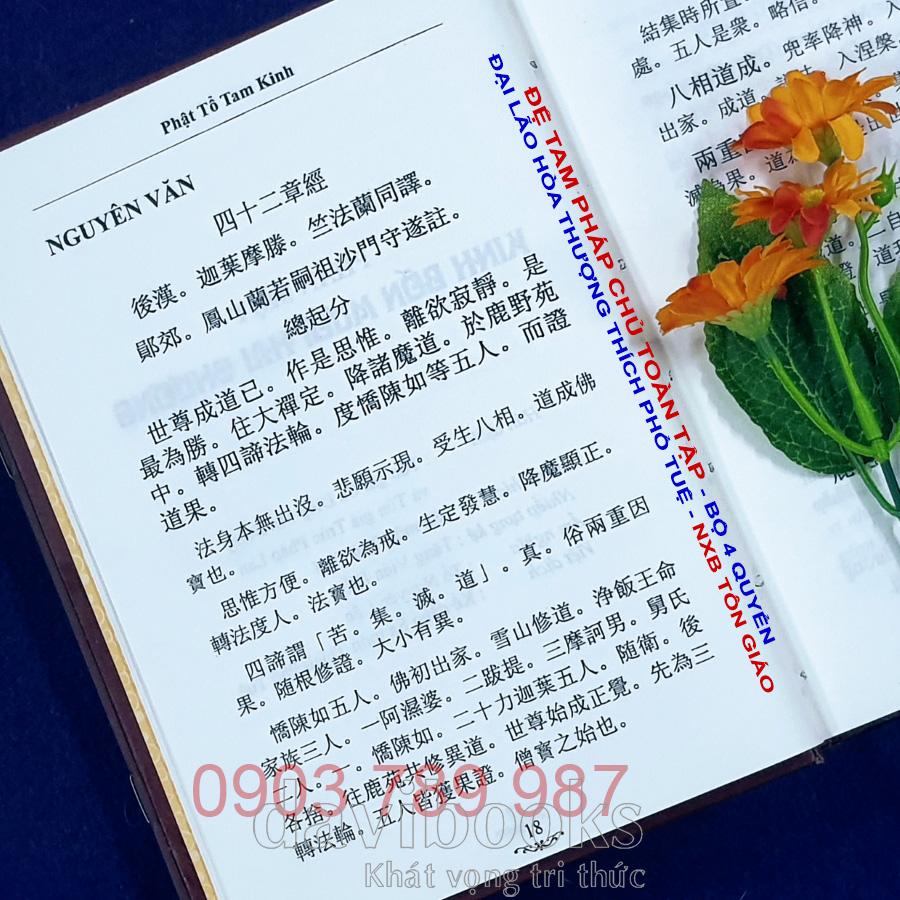 Phật Tổ Tam Kinh
NGUYÊN VĂN
四十二章經
後漢。迦葉摩滕。竺法蘭同譯。
鄖郊。鳳山蘭若嗣祖沙門守遂註。
總起分
世尊成道已。作是思惟。離欲寂靜。是
最為勝。住大禪定。降諸魔道。於鹿野苑
中。轉四諦法輪。度憍陳如等五人。而證
道果。
法身本無出沒。悲願示現。受生八相。道成佛
寶也。
思惟方便。離欲為戒。生定發慧。降魔顯正。
轉法度人。法寶也。
四諦謂「苦。集。滅。道」。真。俗兩重因
果。随根修證。大小有異。
憍陳如五人。佛初出家。雪山修道。浄飯王命
家族三人。一阿濕婆。二跋提。三摩訶男。舅氏
二人。一。憍陳如。二十力迦葉五人。随衛。後
各捨。住鹿苑共修異道。世尊始成正覺。先為三
轉法輪。五人皆獲果證。僧寶之始也。
18
結集時所置。
處。五人是衆。略信。
八相道成。兜率降神。入
出家。成道。 入涅槃。
兩重
滅 果。道為
ĐỆ TAM PHÁP CHỦ TOÀN TẬP - BỘ 4 QUYỂN
ĐẠI LÃO HÒA THƯỢNG THÍCH PHỔ TUỆ - NXB TÔN GIÁO
0903 789 987
davibooks
Khát vọng tri thức